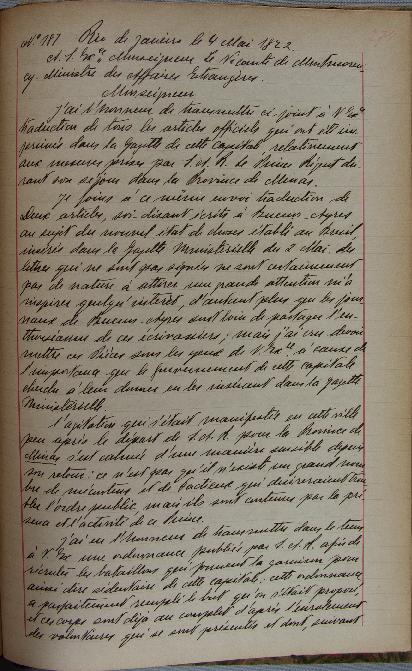 Nº 187 Rio de Janeiro le 4 Mai 1822.
A. S. Exce Monseigneur le Vicomte de Montmoren-
cy. Ministre des Affaires Etrangères.
Monseigneur
J'ai l'honneur de transmettre ci-joint à V. Exce
traduction de tous les articles officiels qui ont été im-
primés dans la gazette de cette capitale relativement
aux mesures prises par S. A. R. le Prince Régent du-
rant son séjour dans la Province de Minas.
Je joins à ce même envoi traduction de
deux articles, soi-disant écrits à Buenos-Ayres
au sujet du nouvel état de choses établi au Brésil
insérés dans la Gazette Ministérielle du 2 Mai. des
lettres qui ne sont pas signées ne sont certainement
pas de nature à attirer une grande attention ni à
inspirer quelqu'intérêt, d'autant plus que les jour-
naux de Buenos-Ayres sont loin de partager l'en-
thousiasme de ces écrivassiers; mais j'ai cru devoir
mettre ces Pièces sous les yeux de V. Exce à cause de
l'importance que le gouvernement de cette capitale
cherche à leur donner en les insérant dans la gazette
Ministérielle.
l'agitation qui s'était manifestée en cette ville
peu après le départ de S. A. R. pour la Province de
Minas s'est calmée d'une manière sensible depuis
son retour: ce n'est pas qu'il n'existe un grand nom-
bre de mécontens et de factieux qui désireraient trou-
bler l'ordre public, mais ils sont contenus par la pré-
sence et l'activité de ce Prince.
J'ai eu l'honneur de transmettre dans le tems
à V. Exce une ordonnance publiée par S. A. R. afin de
recruter les bataillons qui forment la garnison pour
ainsi dire sédentaire de cette capitale: cette ordonnance
a parfaitement rempli le but qu'on s'était proposé,
et ces corps sont déjà au complet d'après l'enrolement
des volontaires qui se sont présentés et dont suivant